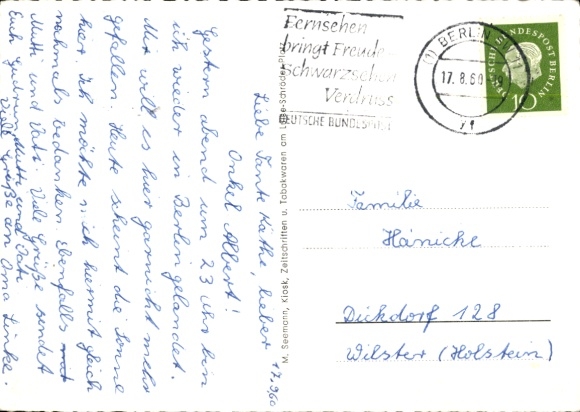 17.9.60
Liebe Tante Käthe, lieber
Onkel Albert!
Gestern abend um 23 Uhr bin
ich wieder in Berlin gelandet.
Mir will es hier garnicht mehr
gefallen. Heute scheint die Sonne
hier. Ich möchte mich hiermit gleich
nochmals bedanken. Ebenfalls
Mutti und Vati. Viele Grüße sendet
Euch Mutti und Vati
Viele Grüße an Oma Linke.
M. Seemann, Kiosk, Zeitschriften u. Tabakwaren am
Fernsehen
bringt Freude
Schwarzsehen
Verdruss
DEUTSCHE BUNDESPOST
BERLIN
17.8.60
DEUTSCHE BUNDESPOST BERLIN
10
Familie
Hänicke
Dickdorf 128
Wilster (Holstein)